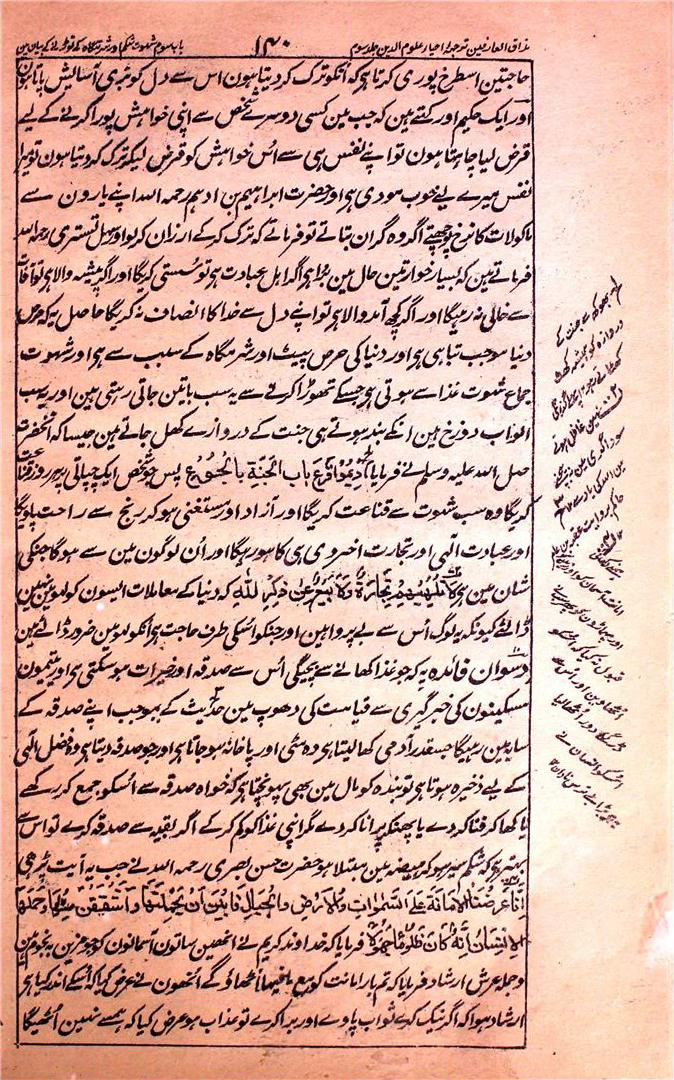 مذاق العارفین ترجمہ احیاء علوم الدین جلد سوم ۱۴۰ باب سوم شہوت شکم اور شرمگاہ کے توڑنے کے بیان مین
حاجتین اسطرح پوری کرتا ہی کہ انکو ترک کر دیتا ہون اس سے دل کو بڑی آسایش پاتا ہون
اور ایک حکیم اور کہتے ہین کہ جب مین کسی دوسرے شخص سے اپنی خواہش پورا کرنے کے لیے
قرض لیا چاہتا ہون تو اپنے نفس ہی سے اُس خواہش کو قرض لیکر ترک کر دیتا ہون تو میرا
نفس میرے لیے خوب مودی ہی اور حضرت ابراہیم بن ادہم رحمہ اللہ اپنے یارون سے
ماکولات کا نرخ پوچھتے اگر وہ گران بتاتے تو فرماتے کہ ترک کر کے ارزان کر لو اور سہل تستری رحمہ اللہ
فرماتے ہین کہ بسیار خوار تین حال مین برا ہی اگر اہل عبادت ہی تو سستی کریگا اور اگر پیشہ والا ہی تو آفات
سے خالی نہ رہیگا اور اگر کچھ آمد والا ہی تو اپنے دل سے خدا کا انصاف نہ کریگا حاصل یہ کہ حرص
دنیا موجب تباہی ہی اور دنیا کی حرص پیٹ اور شرمگاہ کے سبب سے ہی اور شہوت
جماع شہوت غذا سے ہوتی ہی جسکے تھوڑا کرنے سے یہ سب باتین جاتی رہتی ہین اور یہ سب
ابواب دوزخ ہین انکے بند ہوتے ہی جنت کے دروازے کھل جاتے ہین جیسا کہ آنحضرت
صلے اللہ علیہ وسلم نے فرمایا اَدِیْمُوْا قَرْعَ بَابِ الْجَنَّۃِ بِالْجُوْعِ پس جو شخص ایک چپاتی پر ہر روز قناعت
کریگا وہ سب شہوت سے قناعت کریگا اور آزاد اور مستغنی ہو کر رنج سے راحت پاویگا
اور عبادت الٰہی اور تجارت اخروی ہی کا ہو رہیگا اور اُن لوگون مین سے ہوگا جنکی
شان مین ہی لَا تُلْهِيْهِمْ تِجَارَةٌ وَّلَا بَيْعٌ عَنْ ذِكْرِ اللّٰهِ کہ دنیا کے معاملات ایسون کو لہو مین نہین
ڈالتے کیونکہ یہ لوگ اُس سے بے پروا ہین اور جنکو اُسکی طرف حاجت ہی اُنکو لہو مین ضرور ڈالتے ہین
دسوان فائدہ یہ کہ جو غذا کھانے سے بچیگی اُس سے صدقہ اور خیرات ہو سکتی ہی اور یتیمون
مسکینون کی خبرگیری سے قیامت کی دھوپ مین حدیث کے بموجب اپنے صدقہ کے
سایہ مین رہیگا جسقدر آدمی کھا لیتا ہی وہ مٹی اور پاخانہ ہو جاتا ہی اور جو صدقہ دیتا ہی وہ فضل الٰہی
کے لیے ذخیرہ ہوتا ہی تو بندہ کو مال مین بھی پہونچتا ہی کہ خواہ صدقہ سے اُسکو جمع کر رکھے
یا کھا کر فنا کر دے یا پھنکر پرانا کر دے مگر اپنی غذا کو کم کر کے اگر بقیہ سے صدقہ کرے تو اس سے
بہتر ہی کہ شکم سیر ہو کر ہیضہ مین مبتلا ہو حضرت حسن بصری رحمہ اللہ نے جب یہ آیت پڑھی
اِنَّا عَرَضْنَا الْاَمَانَةَ عَلَى السَّمٰوَاتِ وَالْاَرْضِ وَالْجِبَالِ فَاَبَيْنَ اَنْ يَّحْمِلْنَهَا وَاَشْفَقْنَ مِنْهَا وَحَمَلَهَا
الْاِنْسَانُ اِنَّهٗ كَانَ ظَلُوْمًا جَهُوْلًا فرمایا کہ خداوند کریم نے انھین ساتون آسمانون کو جو مزین بہ نجوم ہین
و حملہ عرش ارشاد فرمایا کہ تم بار امانت کو مع مافیہا اُٹھاؤ گے اُنھون نے عرض کیا کہ اُسکے اندر کیا ہی
ارشاد ہوا کہ اگر نیک کرے ثواب پاوے اور بد کرے تو عذاب ہو عرض کیا کہ ہمسے نہین اُٹھیگا
بھوکھ سے جنت کے
دروازہ کو ہمیشہ کھٹ
کھٹاتے رہو
نہین غافل ہوتے
سوداگری مین نہ بیچنے
مین اللہ کی یاد سے
حاکم بروایت عقبہ بن عامر
امانت آسمان کو اور زمین
اور پہاڑون کو
قبول نہ کیا کہ اسکو
اُٹھاوین اور اس سے
ڈر گئے اور اُٹھا لیا
اسکو انسان نے
یہ ہے بڑا بے ترس نادان